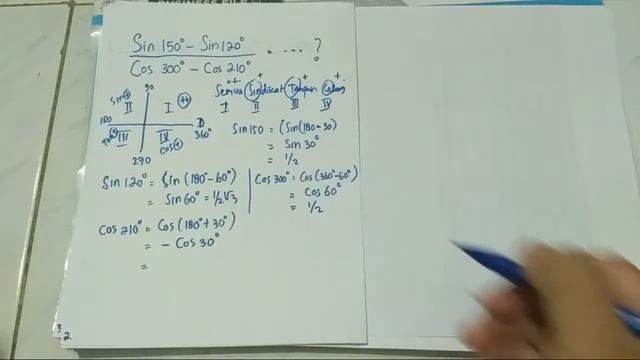 Sin 150° - Sin 120°
Cos 300° - Cos 210°
= .... ?
90
Sin ⊕
II
I
⊕
180
0
360°
Tan ⊕
III
IV
Cos ⊕
270
Semua Sindikat Tangan Kosong
I II III IV
Sin 150 = (Sin (180-30)
= Sin 30°
= 1/2
Sin 120° = Sin (180°-60°)
= Sin 60° = 1/2√3
Cos 300° = Cos (360°-60°)
= Cos 60°
= 1/2
Cos 210° = Cos (180°+30°)
= - Cos 30°
=
2